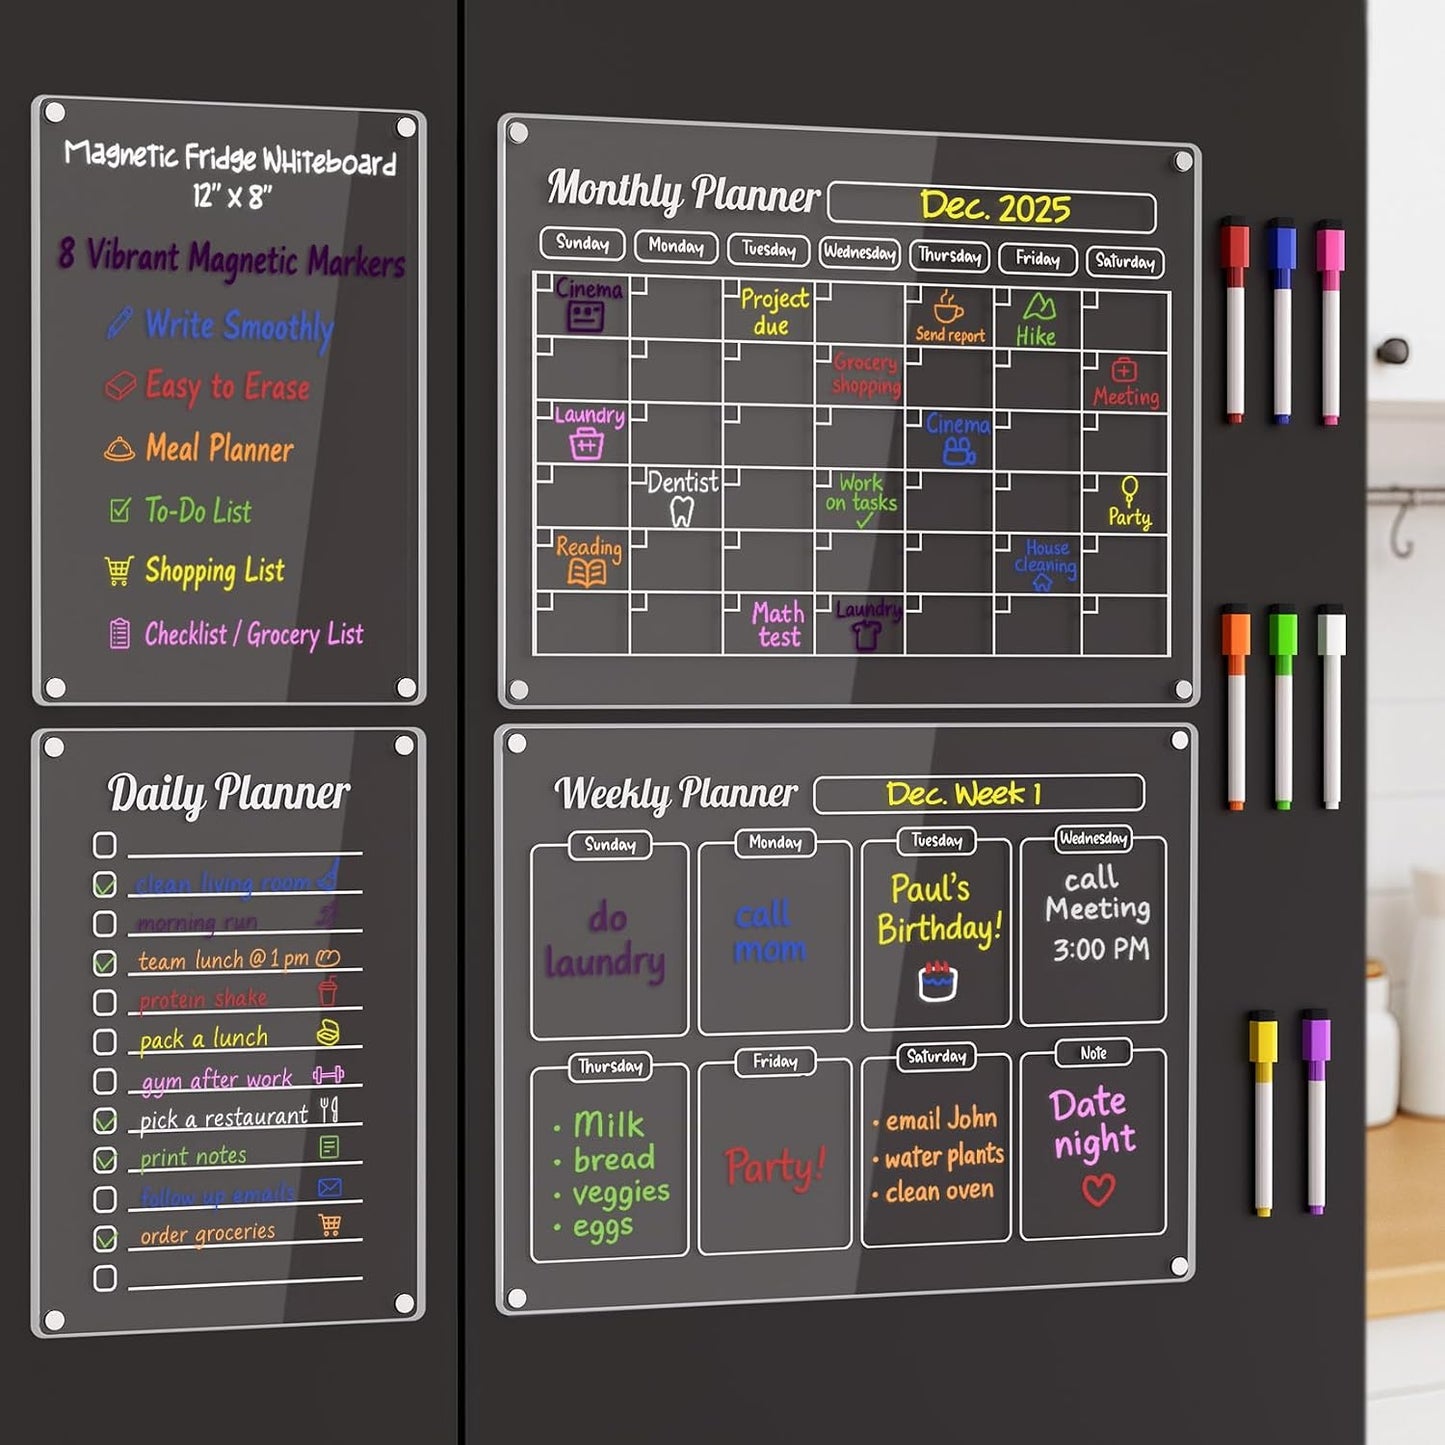 Magnetic Fridge Whiteboard
12" X 8"
8 Vibrant Magnetic Markers
Write Smoothly
Easy to Erase
Meal Planner
To-Do List
Shopping List
Checklist / Grocery List
Monthly Planner
Dec. 2025
Sunday Monday Tuesday Wednesday Thursday Friday Saturday
Cinema
Project
due
Send report
Hike
Grocery
shopping
Meeting
Laundry
Cinema
Dentist
Work
on tasks
Party
Reading
House
cleaning
Math
test
Laundry
Daily Planner
clean living room
morning run
team lunch @ 1 pm
protein shake
pack a lunch
gym after work
pick a restaurant
print notes
follow up emails
order groceries
Weekly Planner
Dec. Week 1
Sunday
do
laundry
Monday
call
mom
Tuesday
Paul's
Birthday!
Wednesday
call
Meeting
3:00 PM
Thursday
• Milk
• bread
• veggies
• eggs
Friday
Party!
Saturday
• email John
• water plants
• clean oven
Note
Date
night